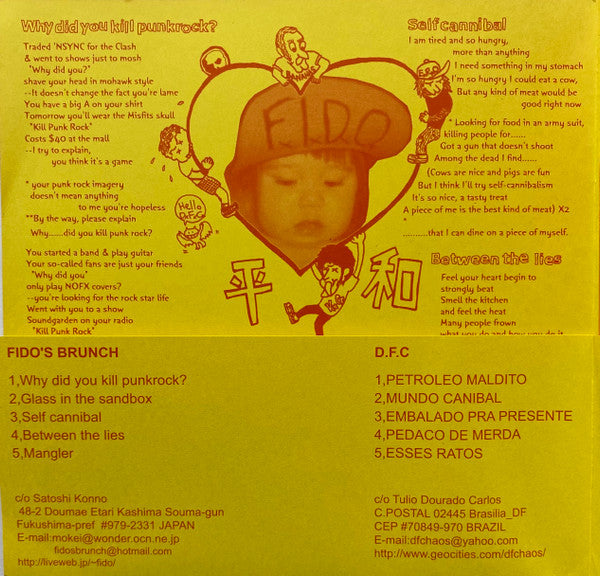 Why did you kill punkrock?
Traded 'NSYNC for the Clash
& went to shows just to mosh
"Why did you?"
shave your head in mohawk style
--It doesn't change the fact you're lame
You have a big A on your shirt
Tomorrow you'll wear the Misfits skull
"Kill Punk Rock"
Costs $40 at the mall
--I try to explain,
you think it's a game
* your punk rock imagery
doesn't mean anything
to me you're hopeless
**By the way, please explain
Why......did you kill punk rock?
You started a band & play guitar
Your so-called fans are just your friends
"Why did you"
only play NOFX covers?
--you're looking for the rock star life
Went with you to a show
Soundgarden on your radio
"Kill Punk Rock"
BANANAS
F.I.D.O
Hello D.F.C
平和
Self cannibal
I am tired and so hungry,
more than anything
I need something in my stomach
I'm so hungry I could eat a cow,
But any kind of meat would be
good right now
* Looking for food in an army suit,
killing people for......
Got a gun that doesn't shoot
Among the dead I find......
(Cows are nice and pigs are fun
But I think I'll try self-cannibalism
It's so nice, a tasty treat
A piece of me is the best kind of meat) X2
*
..........that I can dine on a piece of myself.
Between the lies
Feel your heart begin to
strongly beat
Smell the kitchen
and feel the heat
Many people frown
what you do and how you do it
FIDO'S BRUNCH
1,Why did you kill punkrock?
2,Glass in the sandbox
3,Self cannibal
4,Between the lies
5,Mangler
c/o Satoshi Konno
48-2 Doumae Etari Kashima Souma-gun
Fukushima-pref #979-2331 JAPAN
E-mail:mokei@wonder.ocn.ne.jp
fidosbrunch@hotmail.com
http://liveweb.jp/~fido/
D.F.C
1,PETROLEO MALDITO
2,MUNDO CANIBAL
3,EMBALADO PRA PRESENTE
4,PEDACO DE MERDA
5,ESSES RATOS
c/o Tulio Dourado Carlos
C.POSTAL 02445 Brasilia_DF
CEP #70849-970 BRAZIL
E-mail:dfchaos@yahoo.com
http://www.geocities.com/dfchaos/